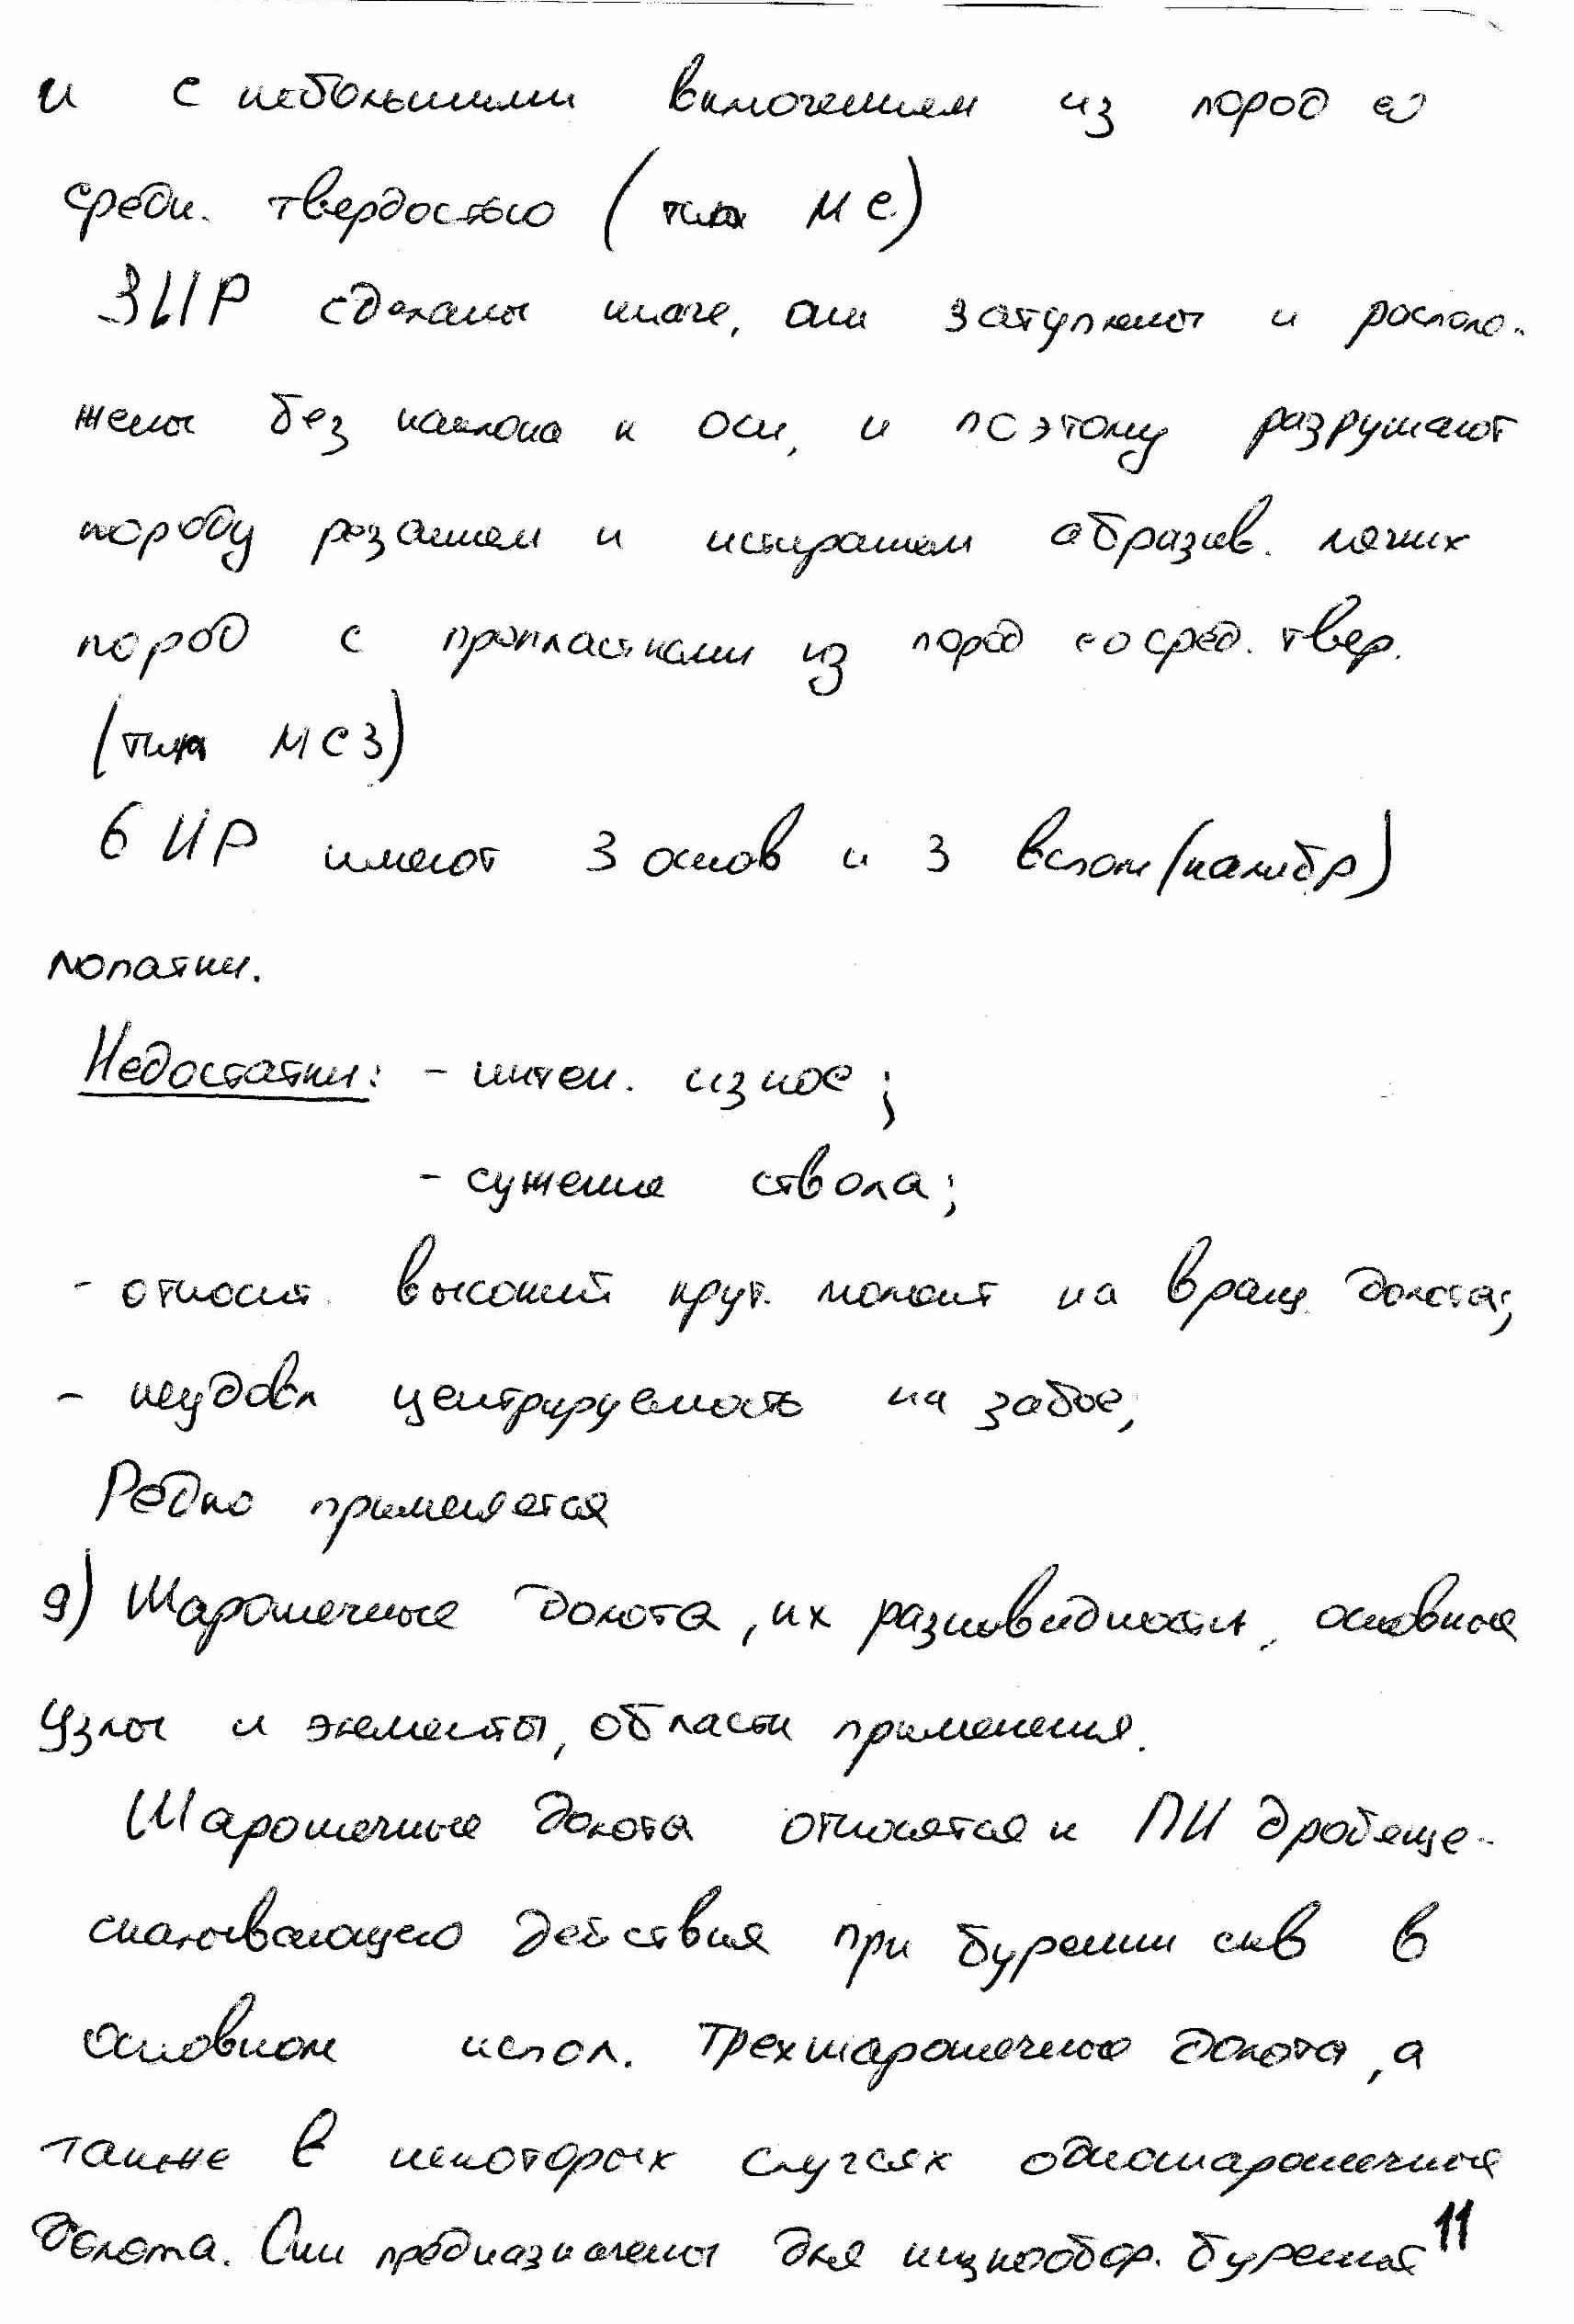 и с небольшими включением из пород со
средн. твердостью (типа МС)
3ИР сделаны иначе, они затуплены и располо-
жены без наклона к оси, и поэтому разрушают
породу резанием и истиранием абразив. мягких
пород с пропластками из пород со сред. твер.
(типа МСЗ)
6 ИР имеют 3 основ и 3 вспом (калибр)
лопатки.
Недостатки: - интен. износ;
- сужение ствола;
- относит. высокий крут. момент на вращ. долота;
- неудовл центрируемость на забое;
Редко применяется
9) Шарошечные долота, их разновидности, основные
узлы и элементы, области применения.
Шарошечные долота относятся к ПИ дробяще-
скалывающего действия при бурении скв в
основном испол. трехшарошечные долота, а
также в некоторых случаях одношарошечные
долота. Они предназначены для низкообор. бурения
11